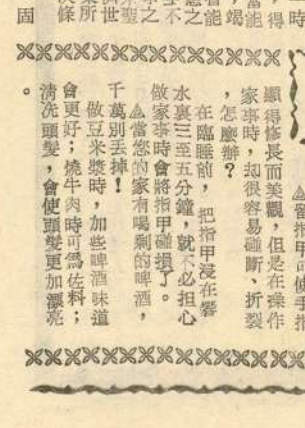 時
，得
能
，竭
能
之
不
之
聖
世
所
條
固
△留指甲可使手指
顯得修長而美觀，但是在操作
家事時，却很容易碰斷、折裂
，怎麼辦？
在臨睡前，把指甲浸在礬
水裏三至五分鐘，就不必担心
做家事時會將指甲碰損了。
△當您的家有喝剩的啤酒，
千萬別丟掉！
做豆米漿時，加些啤酒味道
會更好；燒牛肉時可爲佐料；
清洗頭髮，會使頭髮更加漂亮
。